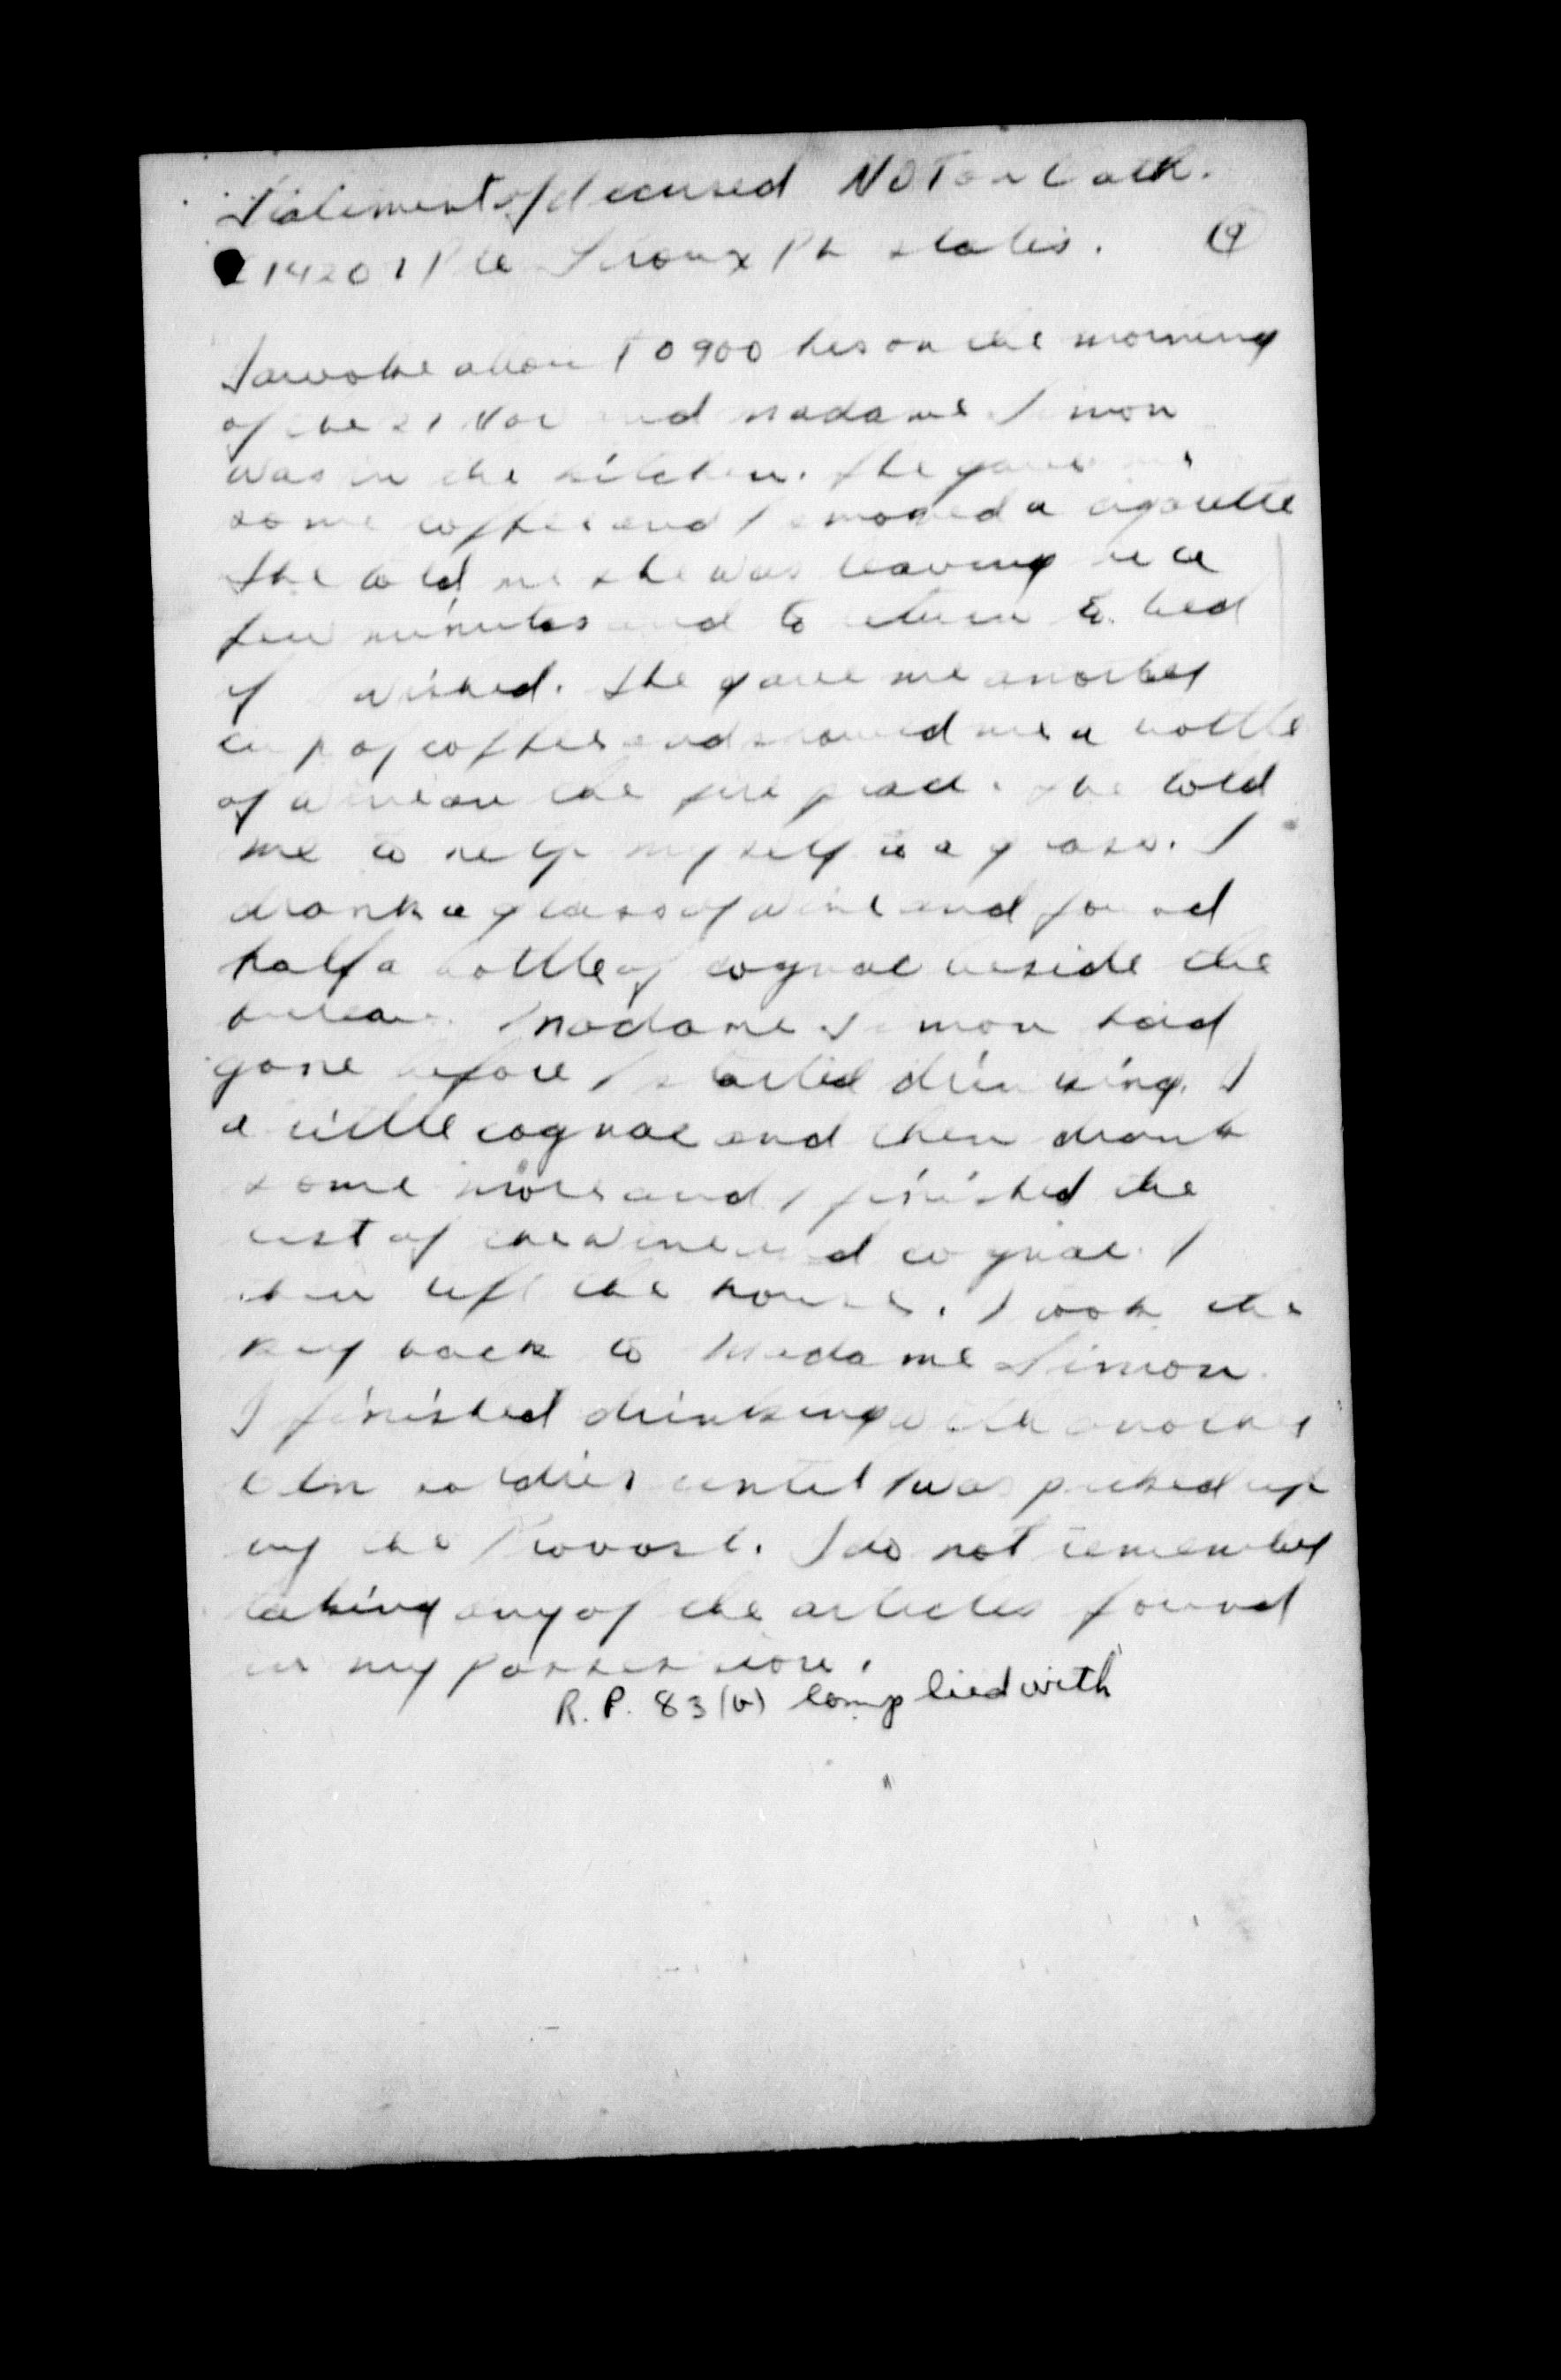 Statement of accused NOT on Oath.
14201 Pte Siroux Ph states. 19
I awoke about 0900 hrs on the morning
of the 21 Nov and Madame Simon
was in the kitchen. She gave me
some coffee and I smoked a cigarette
She told me she was leaving in a
few minutes and to return to bed
if wished. She gave me another
cup of coffee and showed me a bottle
of wine on the fire place. She told
me to help myself to a glass. I
drank a glass of wine and found
half a bottle of cognac beside the
bureau. Madame Simon had
gone before I started drinking. I
a little cognac and then drank
some more and I finished the
rest of the wine and cognac. I
then left the house. I took the
key back to Madame Simon.
I finished drinking with another
Cdn soldier until I was picked up
by the Provost. I do not remember
taking any of the articles found
in my possession.
R.P. 83 (b) Complied with